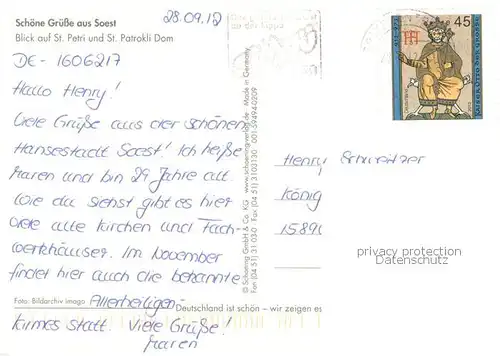 Schöne Grüße aus Soest
Blick auf St. Petri und St. Patrokli Dom
28.09.12
DE-1606217
Hallo Henry!
Viele Grüße aus der schönen
Hansestadt Soest! Ich heiße
Maren und bin 29 Jahre alt.
Wie du siehst gibt es hier
viele alte Kirchen und Fach-
werkhäuser. Im November
findet hier auch die bekannte
Allerheiligen-
kirmes statt. Viele Grüße!
Maren
Foto: Bildarchiv imago
Deutschland ist schön – wir zeigen es
© Schoening GmbH & Co. KG · www.schoening-verlag.de · Made in Germany
Fon (04 51) 31 03-0 · Fax (04 51) 3103130
45
Henry
König
privacy protection
Datenschutz